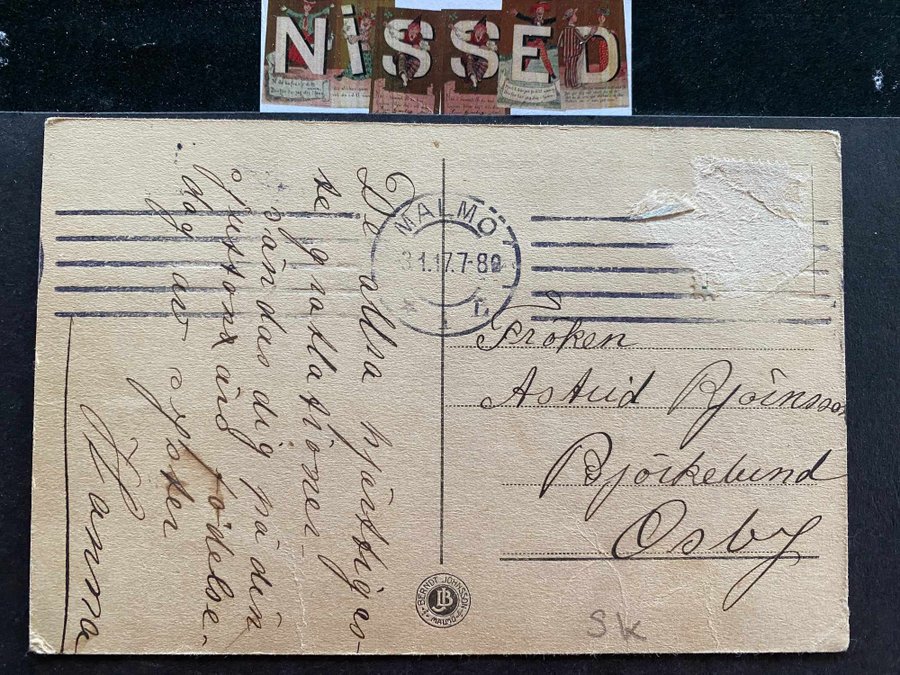 NISSED
De allra hjärtligas-
te gratulationer
sändas dig på din
födelse-
dag av syster
Hanna
MALMÖ
1.17.7-8
Fröken
Astrid Björnsson
Björkelund
Osby
BERNDT JOHNSSON
MALMÖ
Sk